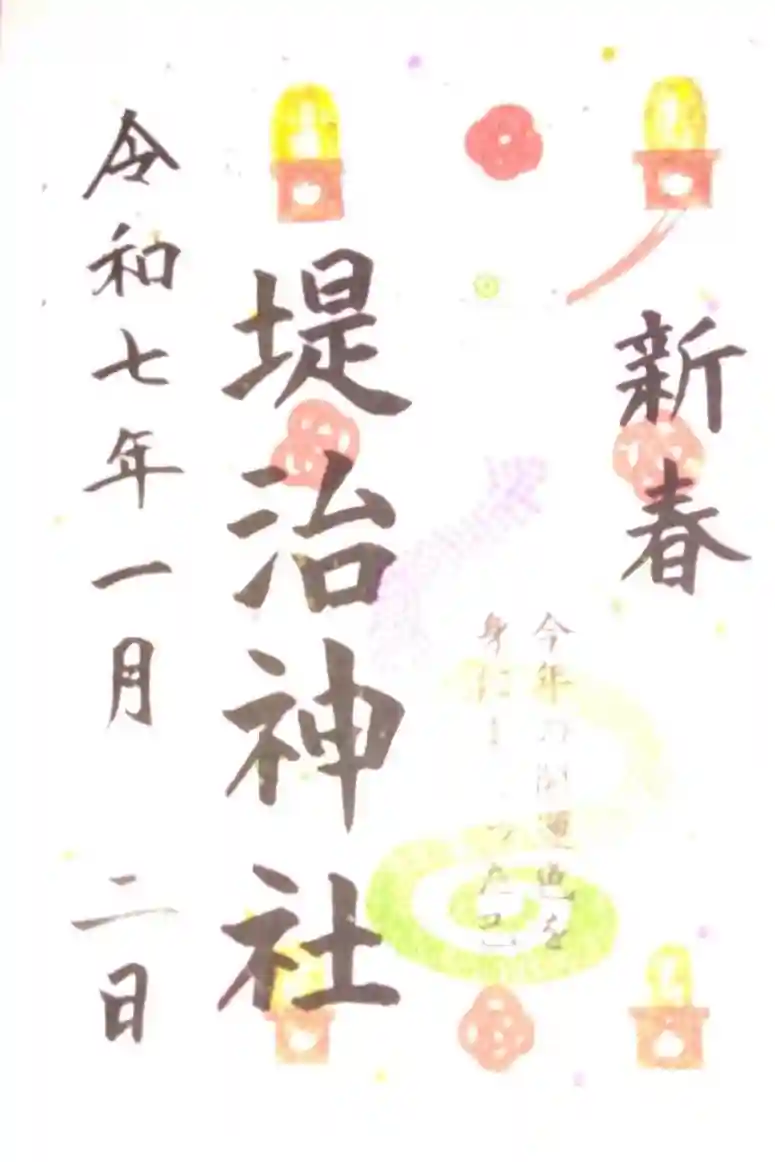 新春
今年の開運色を
身にまとった巳
堤治神社
令和七年一月 二日